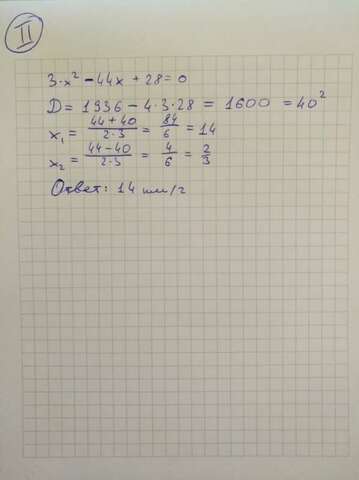 II
3·x² - 44x + 28 = 0
D = 1936 - 4·3·28 = 1600 = 40²
x₁ = (44+40)/(2·3) = 84/6 = 14
x₂ = (44-40)/(2·3) = 4/6 = 2/3
Ответ: 14 км/г